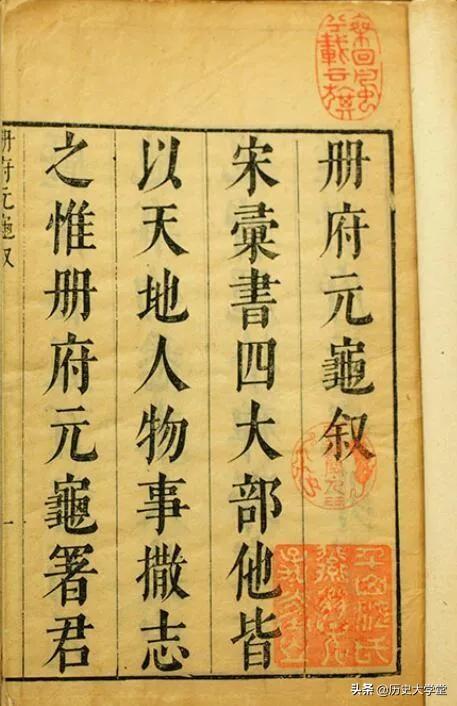 册府元龜叙
宋彙書四大部他皆
以天地人物事撒志
之惟册府元龜署君
册府元龜叙
一
头条 @历史大学堂